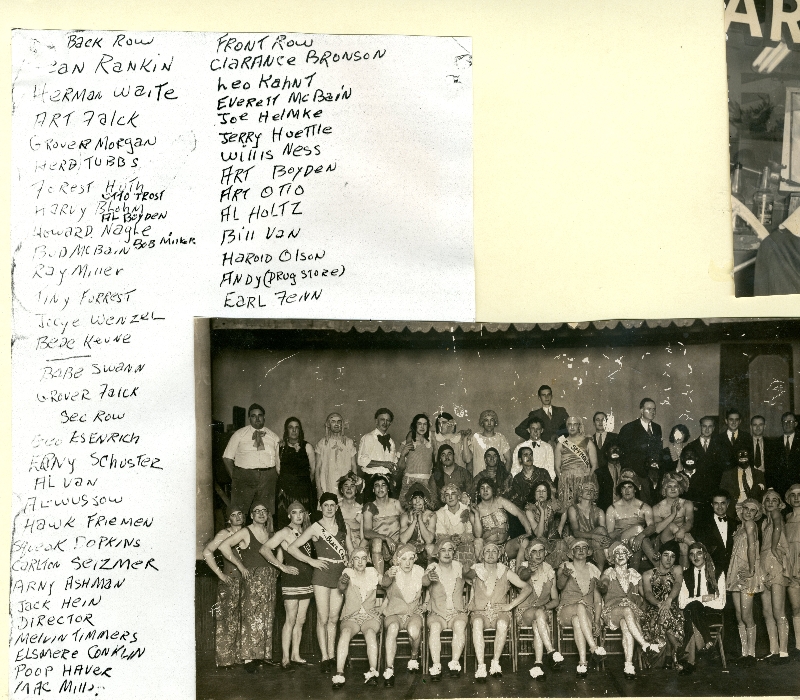 BACK ROW
RANKIN
HERMAN WAITE
ART FALCK
GROVER MORGAN
HERB TUBBS
FOREST HUTH
OTTO TROST
HARVY BLOHM
AL BOYDEN
HOWARD NAGLE
BUD McBAIN BOB MILLER
RAY MILLER
TINY FURREST
JUGE WENZEL
BEDE KEUNE
BABE SWANN
GROVER FALCK
SEC ROW
ESENRICH
ERNY SCHUSTER
AL VAN
AL WUSSOW
HAWK FRIEMEN
SQUEAK DOPKINS
CARLTON SEIZMER
ARNY ASHMAN
JACK HEIN
DIRECTOR
MELVIN TIMMERS
ELSMERE CONKLIN
POOP HAVER
MAC MILLS
FRONT ROW
CLARANCE BRONSON
LEO KAHNT
EVERETT McBAIN
JOE HELMKE
JERRY HUETTLE
WILLIS NESS
ART BOYDEN
ART OTTO
AL HOLTZ
BILL VAN
HAROLD OLSON
ANDY (DRUG STORE)
EARL FENN
AR